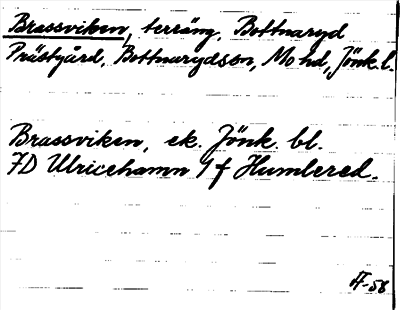 Brassviken, terräng, Bottnaryd
Prästgård, Bottnarydssn, Mo hd, Jönk.l.
Brassviken, ek. Jönk. bl.
7D Ulricehamn 1 f Humlered.